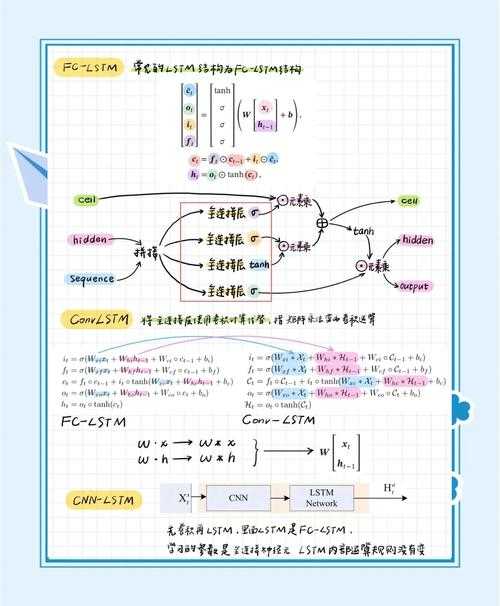 FC-LSTM 常见的LSTM结构为FC-LSTM结构
[c̃t ot it ft] = [tanh σ σ σ] (W [xt ht-1] + b),
ct = ft ⊙ ct-1 + it ⊙ c̃t,
ht = ot ⊙ tanh(ct).
cell
全连接层 σ
⊙元素乘
cell
hidden
拼接
全连接层 σ
⊙元素乘
⊕
tanh
hidden
全连接层 tanh
sequence
全连接层 σ
⊙元素乘
output
ConvLSTM 将全连接层使用卷积计算代替, 指矩阵乘法变为卷积运算
it = σ(Wxixt + Whiht−1 + Wci ∘ ct−1 + bi)
ft = σ(Wxfxt + Whfht−1 + Wcf ∘ ct−1 + bf)
ct = ft ∘ ct−1 + it ∘ tanh(Wxcxt + Whcht−1 + bc)
ot = σ(Wxoxt + Whoht−1 + Wco ∘ ct + bo)
ht = ot ∘ tanh(ct)
it = σ(Wxi * Xt + Whi * Ht−1 + Wci ∘ Ct−1 + bi)
ft = σ(Wxf * Xt + Whf * Ht−1 + Wcf ∘ Ct−1 + bf)
Ct = ft ∘ Ct−1 + it ∘ tanh(Wxc * Xt + Whc * Ht−1 + bc)
ot = σ(Wxo * Xt + Who * Ht−1 + Wco ∘ Ct + bo)
Ht = ot ∘ tanh(Ct)
FC-LSTM Conv-LSTM
W · x → W * x
W · h → W * h
W [xt ht-1]
CNN-LSTM
CNN
LSTM Network
先卷积再LSTM, 里面LSTM是FC-LSTM.
学习的参数是全连接神经元 LSTM内部运算规则没有变